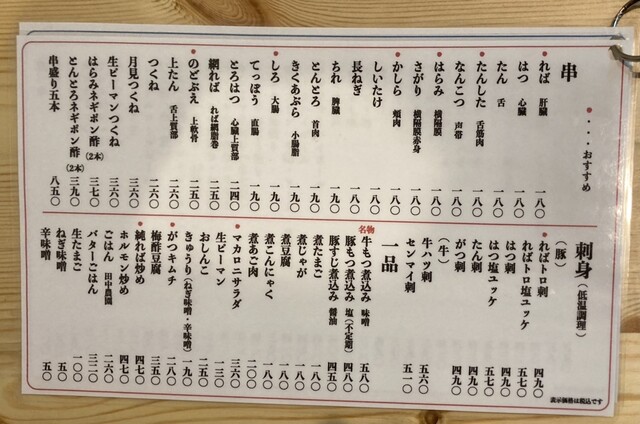 串
●・・・おすすめ
●れば 肝臓 一八〇
はつ 心臓 一八〇
たん 舌 一八〇
●たんした 舌筋肉 一八〇
なんこつ 声帯 一八〇
●はらみ 横隔膜 一八〇
さがり 横隔膜赤身 一八〇
●かしら 頬肉 一八〇
しいたけ 一八〇
長ねぎ 一八〇
ちれ 脾臓 一九〇
とんとろ 首肉 一九〇
きくあぶら 小腸脂 一九〇
●しろ 大腸 一九〇
てっぽう 直腸 一九〇
とろはつ 心臓上質部 二四〇
網れば れば網脂巻 二五〇
●のどぶえ 上軟骨 二五〇
上たん 舌上質部 二六〇
つくね 二六〇
月見つくね 三六〇
生ピーマンつくね 三六〇
はらみネギポン酢(2本) 三七〇
とんとろネギポン酢(2本) 三九〇
串盛り五本 八五〇
刺身(低温調理)
(豚)
●ればトロ刺 四九〇
ればトロ塩ユッケ 五七〇
はつ刺 四九〇
はつ塩ユッケ 五七〇
たん刺 四九〇
がつ刺 四九〇
(牛)
牛ハツ刺 五六〇
センマイ刺 五一〇
一品
名物 牛もつ煮込み 味噌 五八〇
豚もつ煮込み 塩(不定期) 四八〇
豚すじ煮込み 醤油 四五〇
煮たまご 一八〇
煮じゃが 一八〇
煮豆腐 一八〇
煮こんにゃく 一八〇
煮あご肉 二〇〇
●マカロニサラダ 三六〇
生ピーマン 一三〇
おしんこ 二五〇
きゅうり(ねぎ味噌・辛味噌) 一九〇
●がつキムチ 二八〇
梅酢豆腐 三五〇
●純れば炒め 四七〇
ホルモン炒め 四七〇
ごはん 田中農園 二六〇
バターごはん 三二〇
生たまご 一〇〇
ねぎ味噌 五〇
辛味噌 五〇
表示価格は税込です